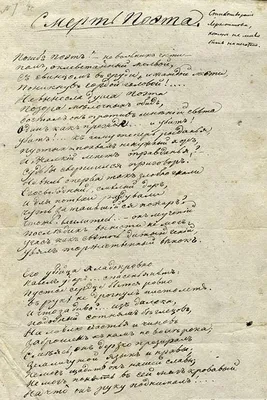 Смерть Поэта.
Стихотворение
Лермонтова,
Погибъ Поэтъ! невольникъ чести
палъ, оклеветанный молвой,
Съ свинцомъ въ груди, и жаждой мести
Поникнувъ гордой головой!...
Не вынесла душа Поэта
Позора мелочныхъ обидъ,
Возсталъ онъ противъ мнѣній свѣта
Одинъ какъ прежде... и убитъ!
Убитъ!... къ чему теперь рыданья
Пустыхъ похвалъ ненужный хоръ,
И жалкій лепетъ оправданья?
Судьбы свершился приговоръ!
Не вы ль сперва такъ злобно гнали
Его свободный, смѣлый даръ
И для потѣхи раздували
Чуть затаившійся пожаръ?
Что-жъ? веселитесь... онъ мученій
Послѣднихъ вынести не могъ,
Угасъ, какъ свѣточъ, дивный геній,
Увялъ торжественный вѣнокъ.
Его убійца хладнокровно
Навелъ ударъ... спасенья нѣтъ.
Пустое сердце бьется ровно
Въ рукѣ не дрогнулъ пистолетъ.
И что за диво?... изъ далека,
Подобный сотнямъ бѣглецовъ
На ловлю счастья и чиновъ
Заброшенъ къ намъ по волѣ рока;
Смѣясь онъ дерзко презиралъ
Земли чужой языкъ и нравы;
Не могъ щадить онъ нашей славы,
Не могъ понять въ сей мигъ кровавый
На что онъ руку подымалъ....